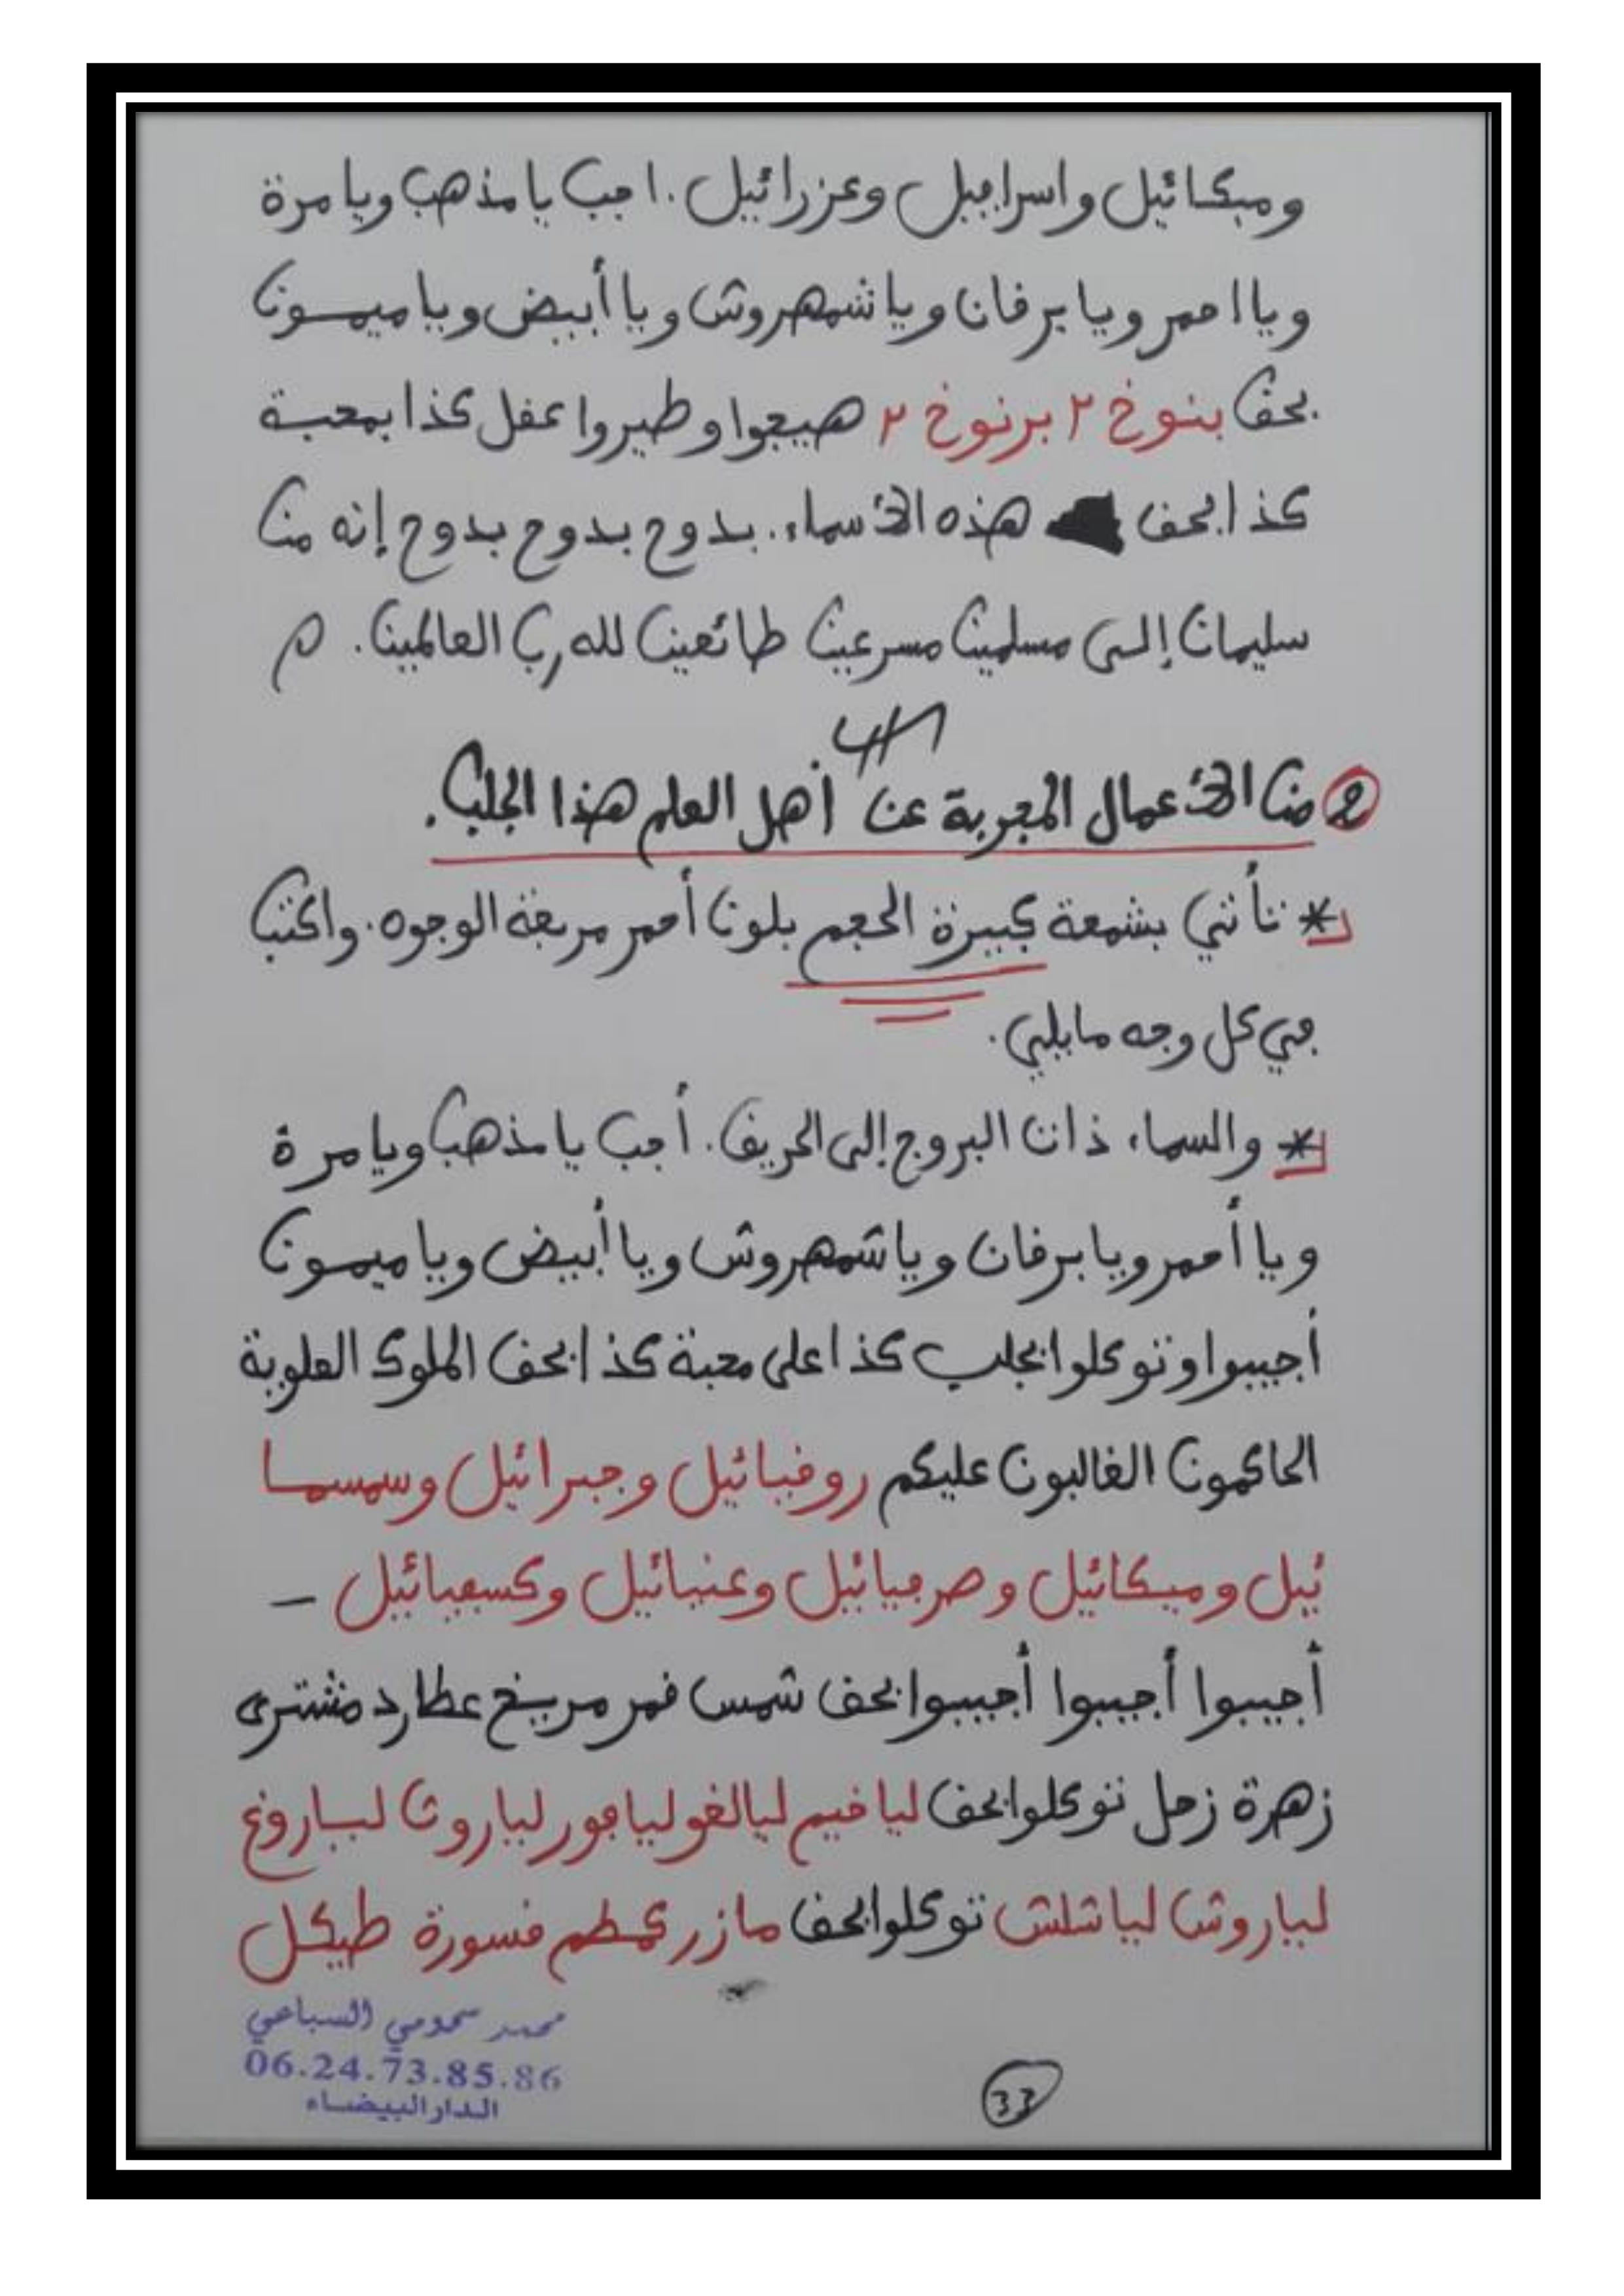 وميكائيل واسرافيل وعزرائيل. اجب يا مذهب ويا مرة
ويا احمر ويا برقان ويا شمهروش ويا أبيض ويا ميمون
بحق بنوخ ٢ برنوخ ٢ هيجوا وطيروا عقل كذا بمحبة
كذا بحق هذه الأسماء. بدوح بدوح بدوح إنه من
سليمان إلى مسلمين مسرعين طائعين لله رب العالمين. م
2 من الأعمال المجربة عن أهل العلم هذا الجلب.
* تأتي بشمعة كبيرة الحجم بلون أحمر مربعة الوجوه. واكتب
في كل وجه مايلي.
* والسماء ذات البروج إلى الحريق. أجب يا مذهب ويا مرة
ويا أحمر ويا برقان ويا شمهروش ويا أبيض ويا ميمون
أجيبوا وتوكلوا بجلب كذا على محبة كذا بحق الملوك العلوية
الحاكمون الغالبون عليكم روقيائيل وجبرائيل وسمسما
ئيل وميكائيل وصرفيائيل وعنيائيل وكسفيائيل –
أجيبوا أجيبوا أجيبوا بحق شمس قمر مريخ عطارد مشترى
زهرة زحل توكلوا بحق لياخيم ليالغو ليافور لياروث لياروغ
لياروش لياشلش توكلوا بحق مازر كمطم قسورة طيكل
محمد سحومي السباعي
06.24.73.85.86
الدار البيضاء
33